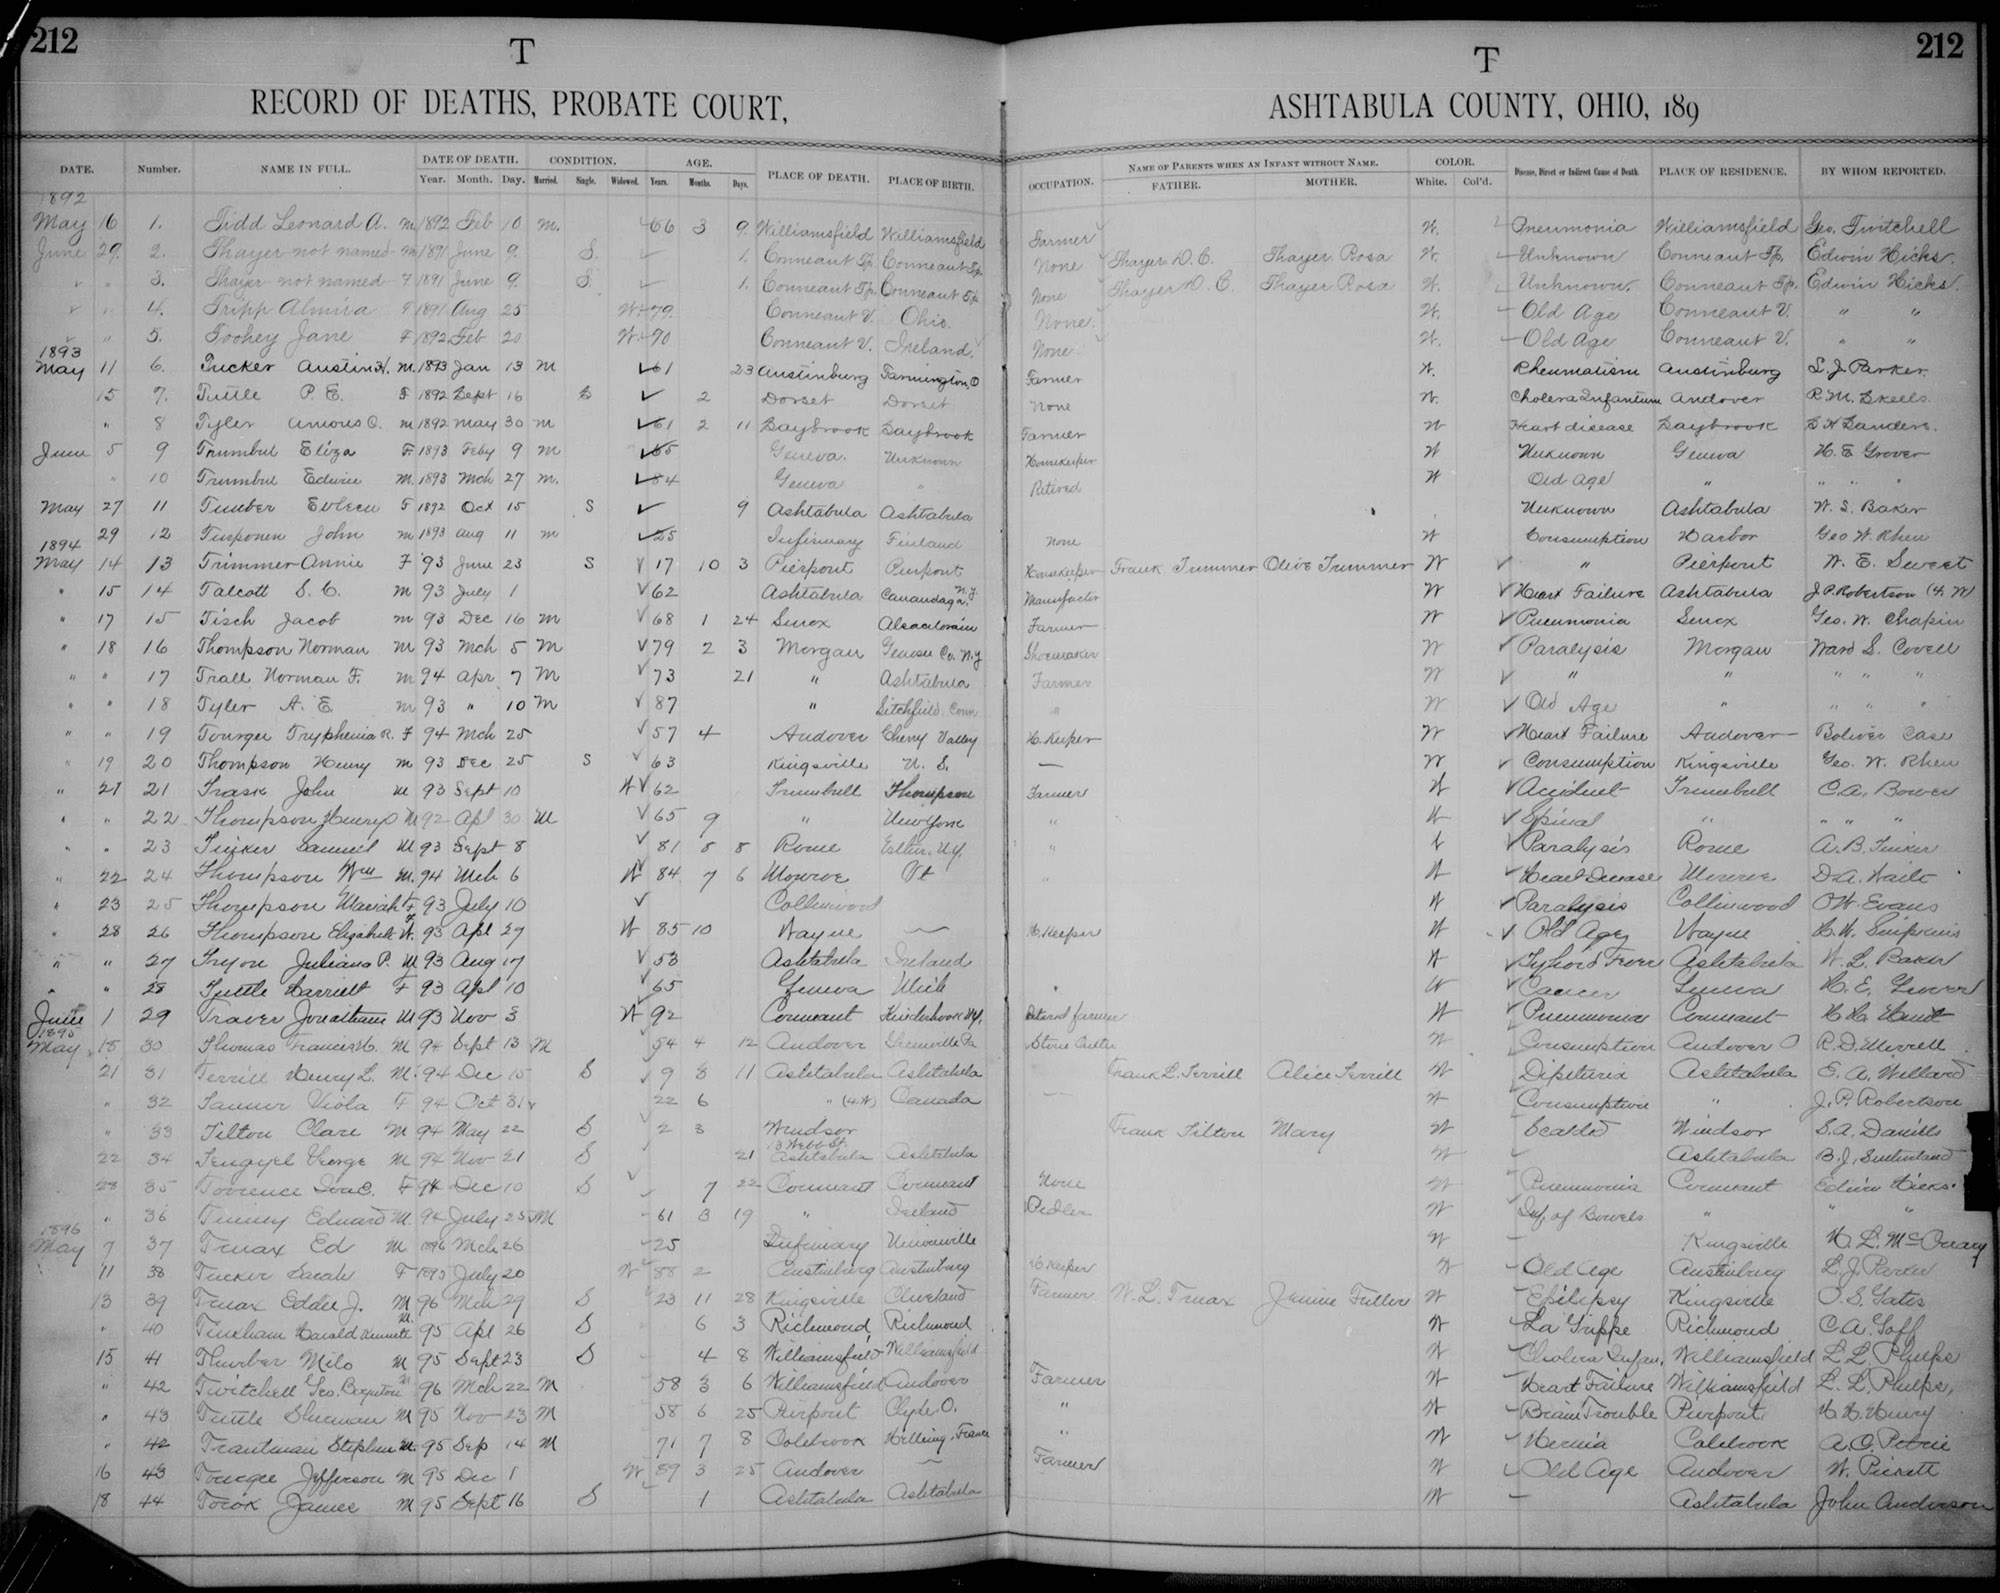 212
T
RECORD OF DEATHS, PROBATE COURT,
T
212
ASHTABULA COUNTY, OHIO, 189
DATE. Number. NAME IN FULL. DATE OF DEATH. CONDITION. AGE. PLACE OF DEATH. PLACE OF BIRTH. OCCUPATION. NAME OF PARENTS WHEN AN INFANT WITHOUT NAME. COLOR. Disease, Direct or Indirect Cause of Death. PLACE OF RESIDENCE. BY WHOM REPORTED.
Year. Month. Day. Married. Single. Widowed. Years. Months. Days. FATHER. MOTHER. White. Col'd.
1892
May 16 1. Tidd Leonard A. M. 1892 Feb 10 M. 66 3 9 Williamsfield Williamsfield Farmer W. Pneumonia Williamsfield Geo. Twitchell
June 29. 2. Thayer not named M 1891 June 9. S. 1. Conneant Tp. Conneant Tp. None Thayer D. C. Thayer Rosa W. Unknown Conneant Tp. Edwin Hicks.
" " 3. Thayer not named F 1891 June 9. S 1. Conneant Tp. Conneant Tp. None Thayer D. C. Thayer Rosa W. Unknown. Conneant Tp. Edwin Hicks.
" " 4. Tripp Almira F 1891 Aug 25 W. 79. Conneant V. Ohio. None. W. Old Age Conneant V. " "
" " 5. Toohey Jane F 1892 Feb 20 W. 70 Conneant V. Ireland. None W. Old Age Conneant V. " "
1893
May 11 6. Tucker Austin H. M. 1893 Jan 13 M 61 23 Austinburg Farmington, O Farmer W. Rheumatism Austinburg L. J. Parker.
15 7. Tuttle P. E. F 1892 Sept 16 S 2 Dorset Dorset None W. Cholera Infantum Andover R. M. Skeels.
" 8 Tyler Amous O. M 1892 May 30 M 61 2 11 Saybrook Saybrook Farmer W Heart disease Saybrook S H Sanders.
June 5 9 Trumbul Eliza F. 1893 Feby 9 M 85 Geneva. Unknown Housekeeper W Unknown Geneva H. E Grover
" 10 Trumbul Edwin M. 1893 Mch 27 M. 84 Geneva " Retired W Old Age " " " "
May 27 11 Timber Evleen F 1892 Oct 15 S 9 Ashtabula Ashtabula Unknown Ashtabula W. S. Baker
29 12 John M 1893 Aug 11 M 25 Infirmary Finland None W Consumption Harbor Geo W. Rhen
1894
May 14 13 Trimmer Annie F '93 June 23 S 17 10 3 Pierpont Pierpont Housekeeper Frank Trimmer Olive Trimmer W " Pierpont W. E. Sweet
" 15 14 Talcott S. C. M 93 July 1 62 Ashtabula Canandaga N.Y. Manufactor W Heart Failure Ashtabula J. P. Robertson (4 W)
" 17 15 Tisch Jacob M 93 Dec 16 M 68 1 24 Lenox Alsacelorain Farmer W Pneumonia Lenox Geo. W. Chapin
" 18 16 Thompson Norman M 93 Mch 5 M 79 2 3 Morgan Genesee Co. N.Y Shoemaker W Paralysis Morgan Ward S. Covell
" " 17 Trall Norman F. M 94 Apr 7 M 73 21 " Ashtabula Farmer W " " " " "
" " 18 Tyler A. E. M 93 " 10 M 87 " Litchfield Conn " W Old Age " " " "
" " 19 Tourgee Tryphenia R. F 94 Mch 25 57 4 Andover Cherry Valley H. Keeper W Heart Failure Andover Boliver Case
" 19 20 Thompson Henry M 93 Dec 25 S 63 Kingsville U. S. — W Consumption Kingsville Geo. W. Rhen
" 21 21 Trask John M 93 Sept 10 W 62 Trumbull Thompson Farmer W Accident Trumbull C. A. Bower
" " 22 Thompson Henry M 92 Apl 30 M 65 9 " New York " W Spinal " " " "
" " 23 Tinker Samuel M 93 Sept 8 81 8 8 Rome N.Y. " W Paralysis Rome A. B. Tinker
" 22 24 Thompson Wm M. 94 Mch 6 W 84 7 6 Monroe Vt " W Heart Disease Monroe D. A. Waite
" 23 25 Thompson Mariah F 93 July 10 Collinwood W Paralysis Collinwood O W. Evans
" 28 26 Thompson Elizabeth F 93 Apl 29 W 85 10 Wayne — H. Keeper W Old Age Wayne H. W. Simpkins
" " 27 Tryon Juliana P. 93 Aug 17 53 Ashtabula Ireland W Typhoid Fever Ashtabula W. L. Baker
" " 28 Tuttle Harriett F 93 Apl 10 65 Geneva Mich " W Cancer Geneva H. E. Grover
June 1 29 Traver Jonathan M 93 Nov 3 W 92 Conneant Kinderhook N.Y. Retired farmer W Pneumonia Conneant
1895
May 15 30 Thomas Francis H. M 94 Sept 13 M 54 4 12 Andover Greenville Pa Stone Cutter W Consumption Andover O R. D. Merrell
21 31 Terrill Henry L. M. 94 Dec 15 S 9 8 11 Ashtabula Ashtabula Frank L. Terrill Alice Terrill W Dipetheria Ashtabula E. A. Willard
" 32 Tanner Viola F 94 Oct 31 22 6 " (4 W) Canada — W Consumption " J. P. Robertson
" 33 Tilton Clare M 94 May 22 S 2 3 Windsor Frank Tilton Mary W Scalded Windsor S. A. Daniels
22 34 Tengyel George M 94 Nov 21 S 21 13 Webb St. Ashtabula Ashtabula W Ashtabula B. J. Sutherland
28 35 Torrence Iva C. F 94 Dec 10 S 7 22 Conneant Conneant None W Pneumonia Conneant Edwin Hicks.
" 36 Tinney Edward M. 94 July 25 M 61 3 19 " Ireland Pedler W Inf. of Bowels " " "
1896
May 7 37 Truax Ed M 1896 Mch 26 25 Infirmary Unionville W — Kingsville
11 38 Tucker Sarah F 1895 July 20 W 88 2 Austinburg Austinburg H Keeper W Old Age Austinburg L. J. Parker
13 39 Truax Eddie J. M 96 Mch 29 S 23 11 28 Kingsville Cleveland Farmer W. L. Truax Jennie Fuller W Epilipsy Kingsville O. S. Gates
" 40 Tinkham Harold Kenneth M. 95 Apl 26 S 6 3 Richmond Richmond W La Grippe Richmond C. A. Goff
15 41 Thurber Milo M 95 Sept 23 S 4 8 Williamsfield Williamsfield W Cholera Infan. Williamsfield L. L. Phelps
" 42 Twitchell Geo. Boynton M 96 Mch 22 M 58 3 6 Williamsfield Andover Farmer W Heart Failure Williamsfield L. L. Phelps,
" 43 Tuttle Sherman M 95 Nov 23 M 58 6 25 Pierpont Clyde O. " W Brain Trouble Pierpont H. H. Henry
" 42 Trautman Stephen M. 95 Sep 14 M 71 7 8 Colebrook France " W Hernia Colebrook A. O. Petrie
16 43 Tourgee Jefferson M 95 Dec 1 W 89 3 25 Andover — Farmer W Old Age Andover W. Pickett
18 44 Torok James M 95 Sept 16 S 1 Ashtabula Ashtabula W — Ashtabula John Anderson